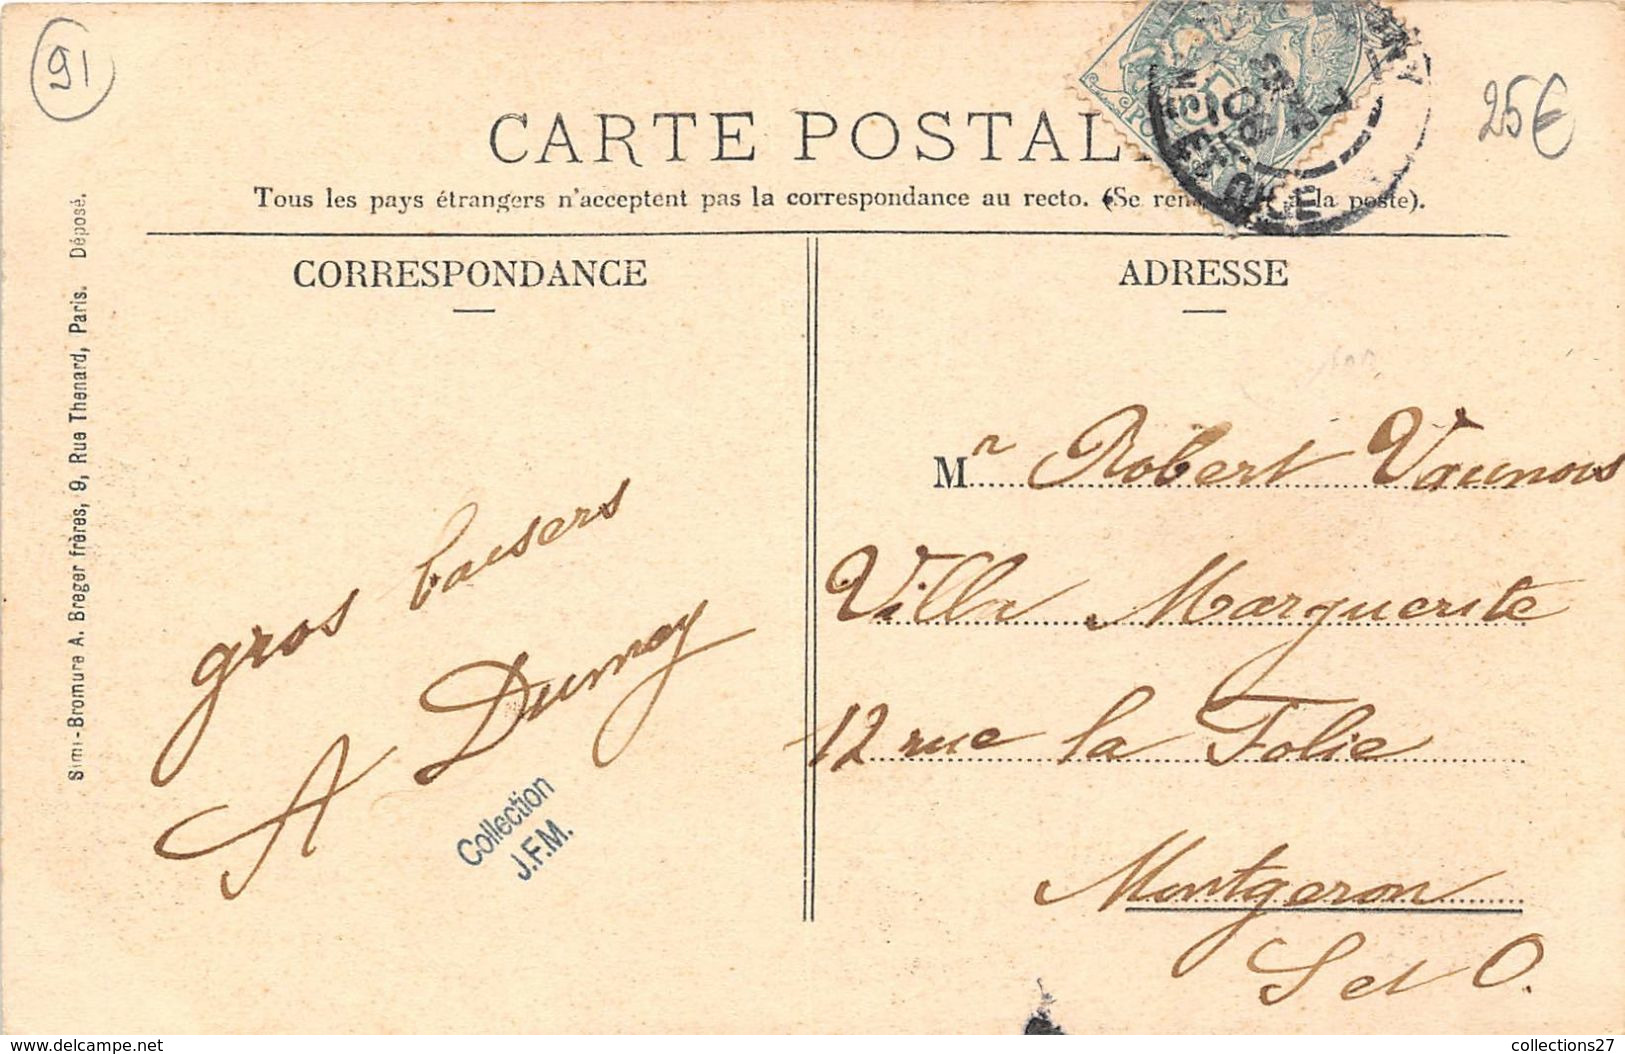 91
25€
CARTE POSTAL
Tous les pays étrangers n'acceptent pas la correspondance au recto. (Se à la poste).
CORRESPONDANCE
ADRESSE
Simi-Bromure A. Breger frères, 9, Rue Thenard, Paris. Déposé.
gros baisers
A Dumoy
Collection
J.F.M.
Mr Robert Vaunois
Villa Marguerite
12 rue la Folie
Montgeron
S et O.
delcampe.net
collections27